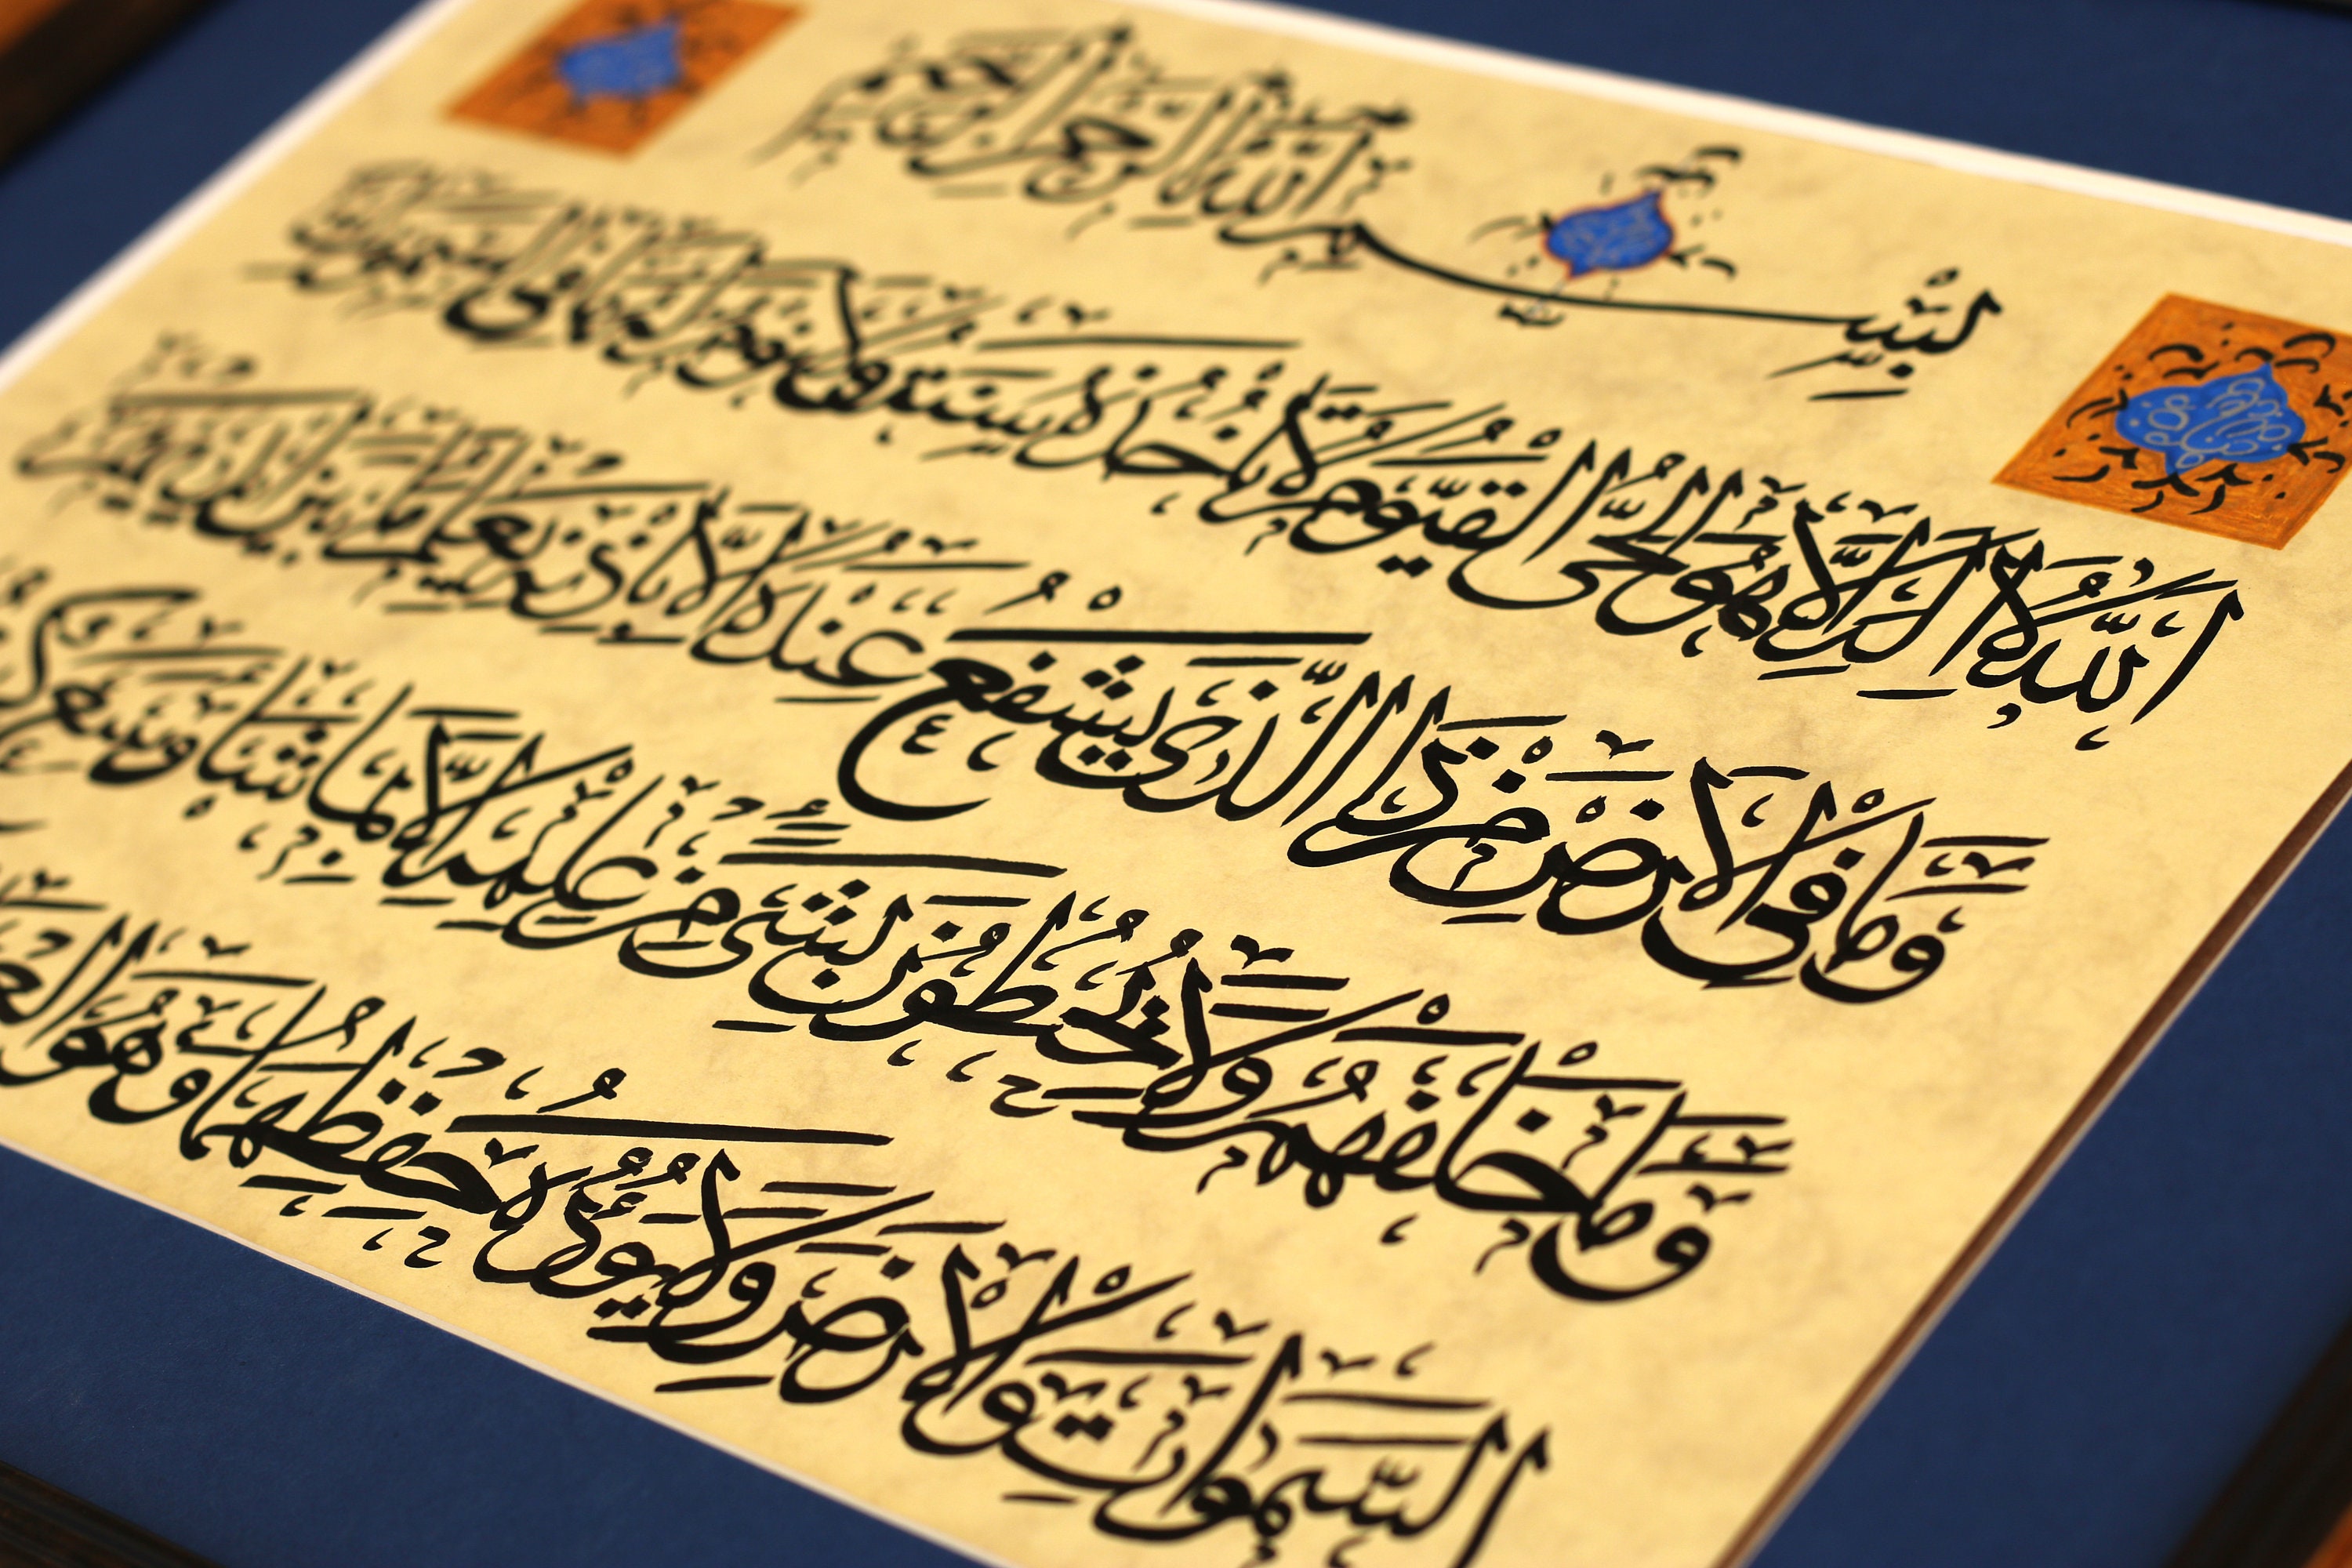 بِسْمِ اللَّهِ الرَّحْمٰنِ الرَّحِيمِ
اَللّٰهُ لَا اِلٰهَ اِلَّا هُوَ الْحَيُّ الْقَيُّومُ لَا تَأْخُذُهُ سِنَةٌ وَلَا نَوْمٌ لَهُ مَا فِي السَّمٰوَاتِ
وَمَا فِي الْاَرْضِ مَنْ ذَا الَّذِي يَشْفَعُ عِنْدَهُ اِلَّا بِاِذْنِهِ يَعْلَمُ مَا بَيْنَ اَيْدِيهِمْ
وَمَا خَلْفَهُمْ وَلَا يُحِيطُونَ بِشَيْءٍ مِنْ عِلْمِهِ اِلَّا بِمَا شَاءَ وَسِعَ
السَّمٰوَاتِ وَالْاَرْضَ وَلَا يَؤُدُهُ حِفْظُهُمَا وَهُوَ